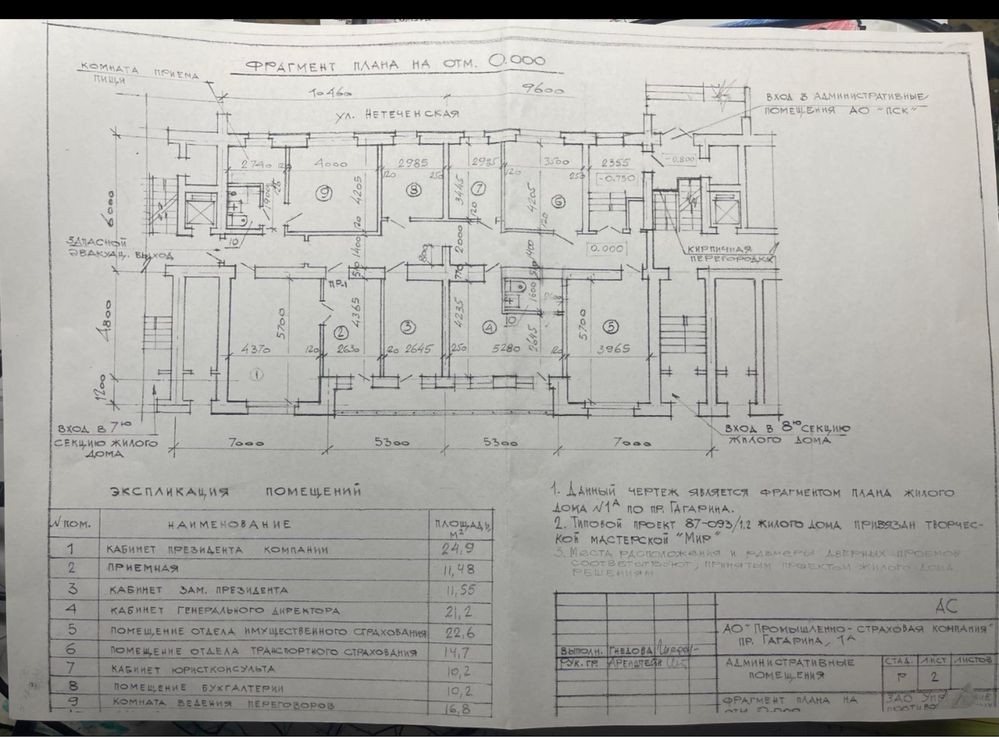 ФРАГМЕНТ ПЛАНА НА ОТМ. 0.000
КОМНАТА ПРИЕМА
ПИЩИ
10460
9600
ВХОД В АДМИНИСТРАТИВНЫЕ
ПОМЕЩЕНИЯ АО "ПСК"
УЛ. НЕТЕЧЕНСКАЯ
2740 120 4000 2985 2985 3500 2355
-0.800
-0.750
120 250
9 8 7 6
4205 3445 4205
120 120 120
6000
10
ЗАПАСНОЙ
ЭВАКУАЦ. ВЫХОД
1400 800 2000 1400
0.000
КИРПИЧНАЯ
ПЕРЕГОРОДКА
510 770 510
ПР-1
1600
10
4800
5700 4365 4235 2645 5700
2 3 4 5
4370 120 2630 120 2645 250 5280 120 3965
1
1200
ВХОД В 7Ю
СЕКЦИЮ ЖИЛОГО
ДОМА
ВХОД В 8Ю СЕКЦИЮ
ЖИЛОГО ДОМА
7000 5300 5300 7000
ЭКСПЛИКАЦИЯ ПОМЕЩЕНИЙ
N ПОМ. НАИМЕНОВАНИЕ ПЛОЩАДЬ, М²
1 КАБИНЕТ ПРЕЗИДЕНТА КОМПАНИИ 24,9
2 ПРИЕМНАЯ 11,48
3 КАБИНЕТ ЗАМ. ПРЕЗИДЕНТА 11,55
4 КАБИНЕТ ГЕНЕРАЛЬНОГО ДИРЕКТОРА 21,2
5 ПОМЕЩЕНИЕ ОТДЕЛА ИМУЩЕСТВЕННОГО СТРАХОВАНИЯ 22,6
6 ПОМЕЩЕНИЕ ОТДЕЛА ТРАНСПОРТНОГО СТРАХОВАНИЯ 14,7
7 КАБИНЕТ ЮРИСТКОНСУЛЬТА 10,2
8 ПОМЕЩЕНИЕ БУХГАЛТЕРИИ 10,2
9 КОМНАТА ВЕДЕНИЯ ПЕРЕГОВОРОВ 16,8
1. ДАННЫЙ ЧЕРТЕЖ ЯВЛЯЕТСЯ ФРАГМЕНТОМ ПЛАНА ЖИЛОГО
ДОМА N1А ПО ПР. ГАГАРИНА.
2. ТИПОВОЙ ПРОЕКТ 87-093/1.2 ЖИЛОГО ДОМА ПРИВЯЗАН ТВОРЧЕС-
КОЙ МАСТЕРСКОЙ "МИР"
3. МЕСТА РАСПОЛОЖЕНИЯ И РАЗМЕРЫ ДВЕРНЫХ ПРОЕМОВ
СООТВЕТСТВУЮТ, ПРИНЯТЫМ ПРОЕКТОМ ЖИЛОГО ДОМА
РЕШЕНИЯМ
АС
АО "ПРОМЫШЛЕННО-СТРАХОВАЯ КОМПАНИЯ"
ПР. ГАГАРИНА, 1А
ВЫПОЛН. ГНЕДОВА
РУК. ГР
АДМИНИСТРАТИВНЫЕ
ПОМЕЩЕНИЯ
СТАД. ЛИСТ ЛИСТОВ
Р 2
ФРАГМЕНТ ПЛАНА НА
ОТМ 0.000
ЗАО